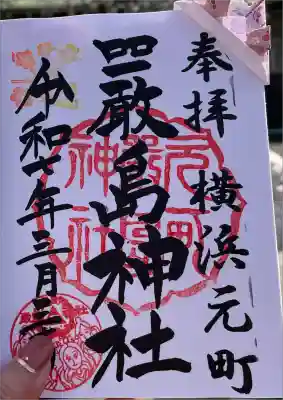 奉拝 横浜元町
嚴島神社
令和七年三月三